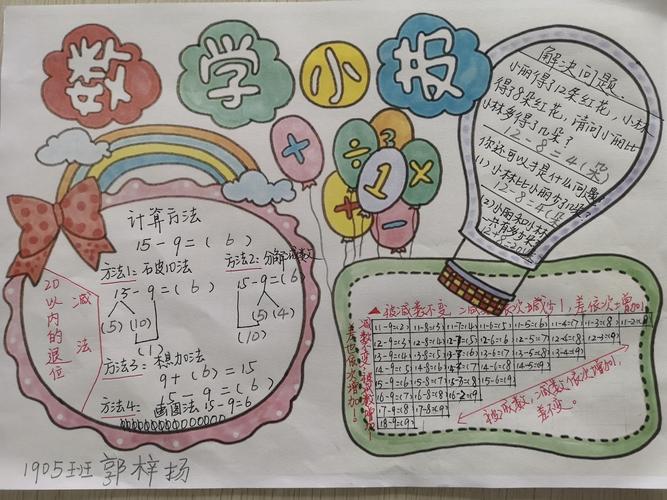 数学小报
+
÷
?
1
×
−
计算方法
15-9=(6)
方法1:破十法
15-9=(6)
(5)(10)
(1)
方法2:分解减数
15-9=(6)
(5)(4)
(10)
方法3:想加法
9+(6)=15
15-9=(6)
方法4:画图法 15-9=6
20以内的退位
减法
解决问题
小丽得了12朵红花,小林
得了8朵红花,请问小丽比
小林多得了几朵?
12-8=4(朵)
你还可以提什么问题
(1)小林比小丽少几朵?
12-8=4(朵)
(2)小丽和小林
一共有多少朵
▲被减数不变,减数依次减少1,差依次增加1
11-9=(2) 11-8=(3) 11-7=(4) 11-6=(5) 11-5=(6) 11-4=(7) 11-3=(8) 11-2=(9)
12-9=(3) 12-8=(4) 12-7=(5) 12-6=(6) 12-5=(7) 12-4=(8) 12-3=(9)
13-9=(4) 13-8=(5) 13-7=(6) 13-6=(7) 13-5=(8) 13-4=(9)
14-9=(5) 14-8=(6) 14-7=(7) 14-6=(8) 14-5=(9)
15-9=(6) 15-8=(7) 15-7=(8) 15-6=(9)
16-9=(7) 16-8=(8) 16-7=(9)
17-9=(8) 17-8=(9)
18-9=(9)
被减数,减数依次增加1,
差不变。
1905班 郭梓扬